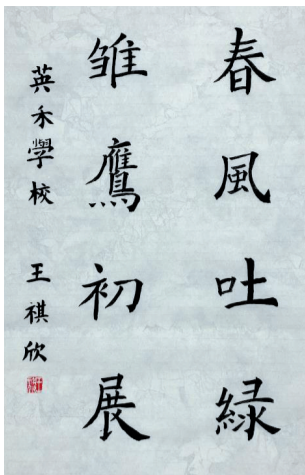 春風吐緑
雏鷹初展
英禾學校 王祺欣